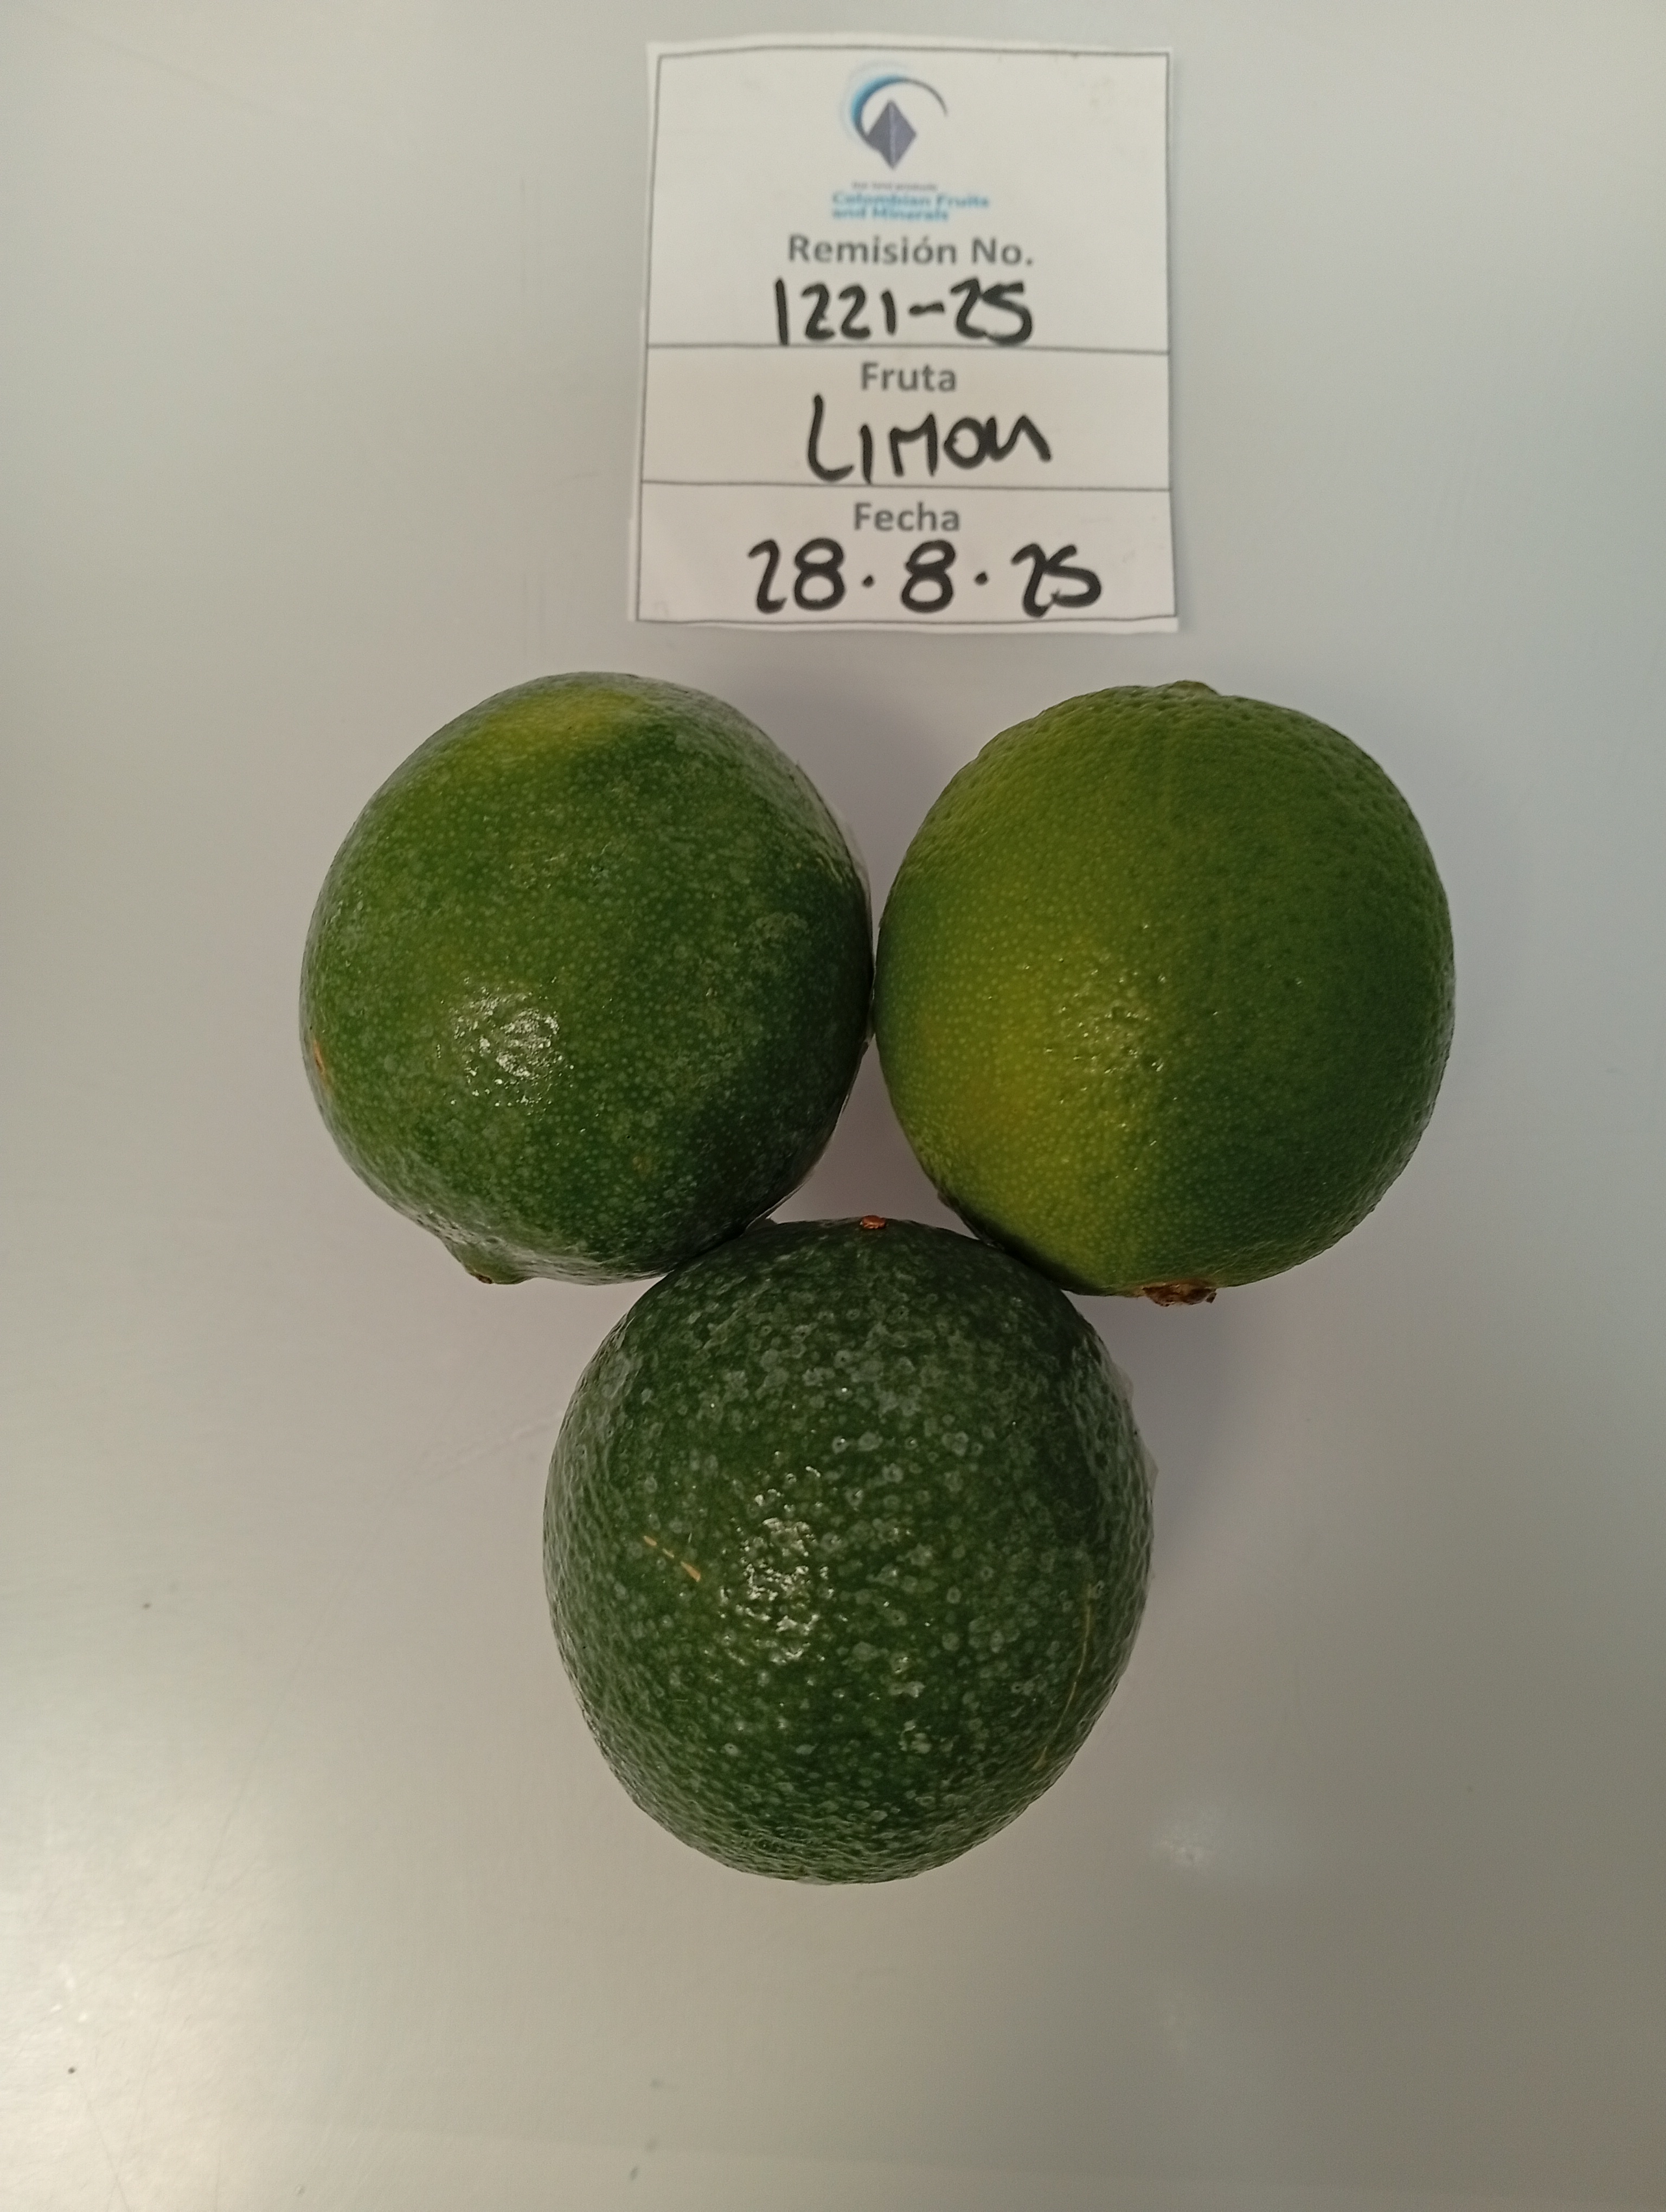 Colombian Fruits
and Minerals
Remisión No.
1221-25
Fruta
LIMON
Fecha
28.8.25